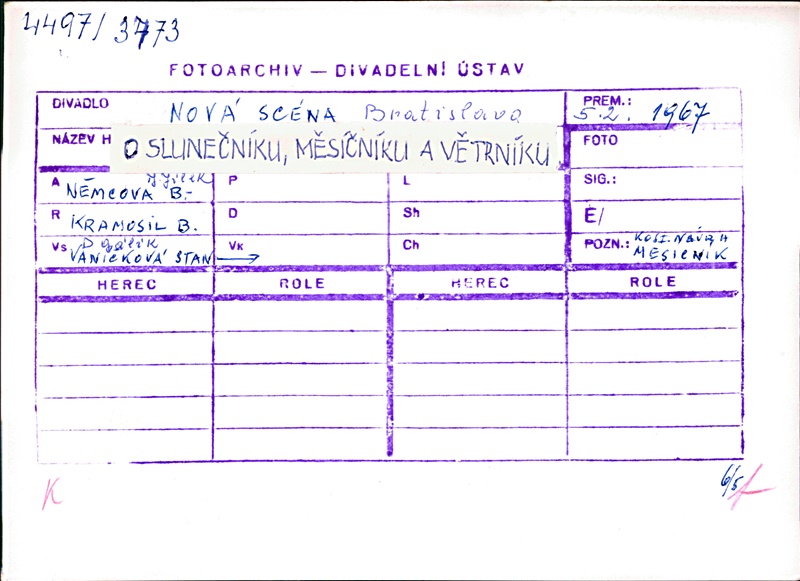 4497/3773
FOTOARCHIV — DIVADELNÍ ÚSTAV
DIVADLO NOVÁ SCÉNA Bratislava
PREM.: 5.2. 1967
NÁZEV H
O SLUNEČNÍKU, MĚSÍČNÍKU A VĚTRNÍKU
FOTO
A NĚMCOVÁ B.-
P
L
SIG.:
R KRAMOSIL B.
D
Sh
É/
Vs VANÍČKOVÁ STAN
Vk
Ch
POZN.: KOST. NÁVRH
MĚSÍČNÍK
HEREC ROLE HEREC ROLE
K
6/5